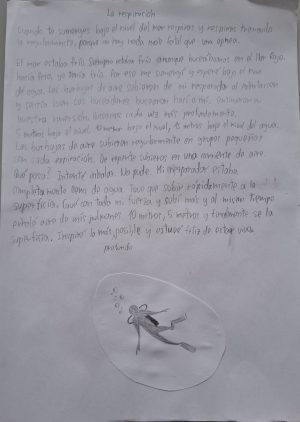 La respiración
Cuando te sumerges bajo el nivel del mar respiras y respiras tranquilo
y regularmente, porque no hay nada más fatal que una apnea.
El mar estaba frío. Siempre estaba frío aunque buceábamos en el Mar Rojo.
Hacía frío, yo tenía frío. Por eso me sumergí y esperé bajo el nivel
de agua. Las burbujas de aire subieron de mi respirador al
y otros los buceadores bucearon hacia mí. Empezamos
nuestra inmersión. Buceamos cada vez más profundamente.
5 metros bajo el nivel, 10 metros bajo el nivel, 15 metros bajo el nivel del agua.
Las burbujas de aire subieron regularmente en grupos pequeños
con cada expiración. De repente subieron en una corriente de aire
¿Qué pasó? Intenté inhalar. No pude. Mi respirador estaba
completamente lleno de agua. Tuve que subir rápidamente a la
superficie. con toda mi fuerza y subí más y al mismo tiempo
aire de mis pulmones. 10 metros, 5 metros y finalmente la
superficie. Inspiré lo más posible y estuve feliz de estar viva
profundo